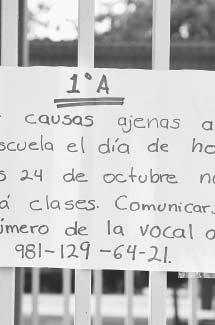 1°A
causas ajenas a
scuela el día de ho
s 24 de octubre n
á clases. Comunicar
úmero de la vocal
981-129-64-21.